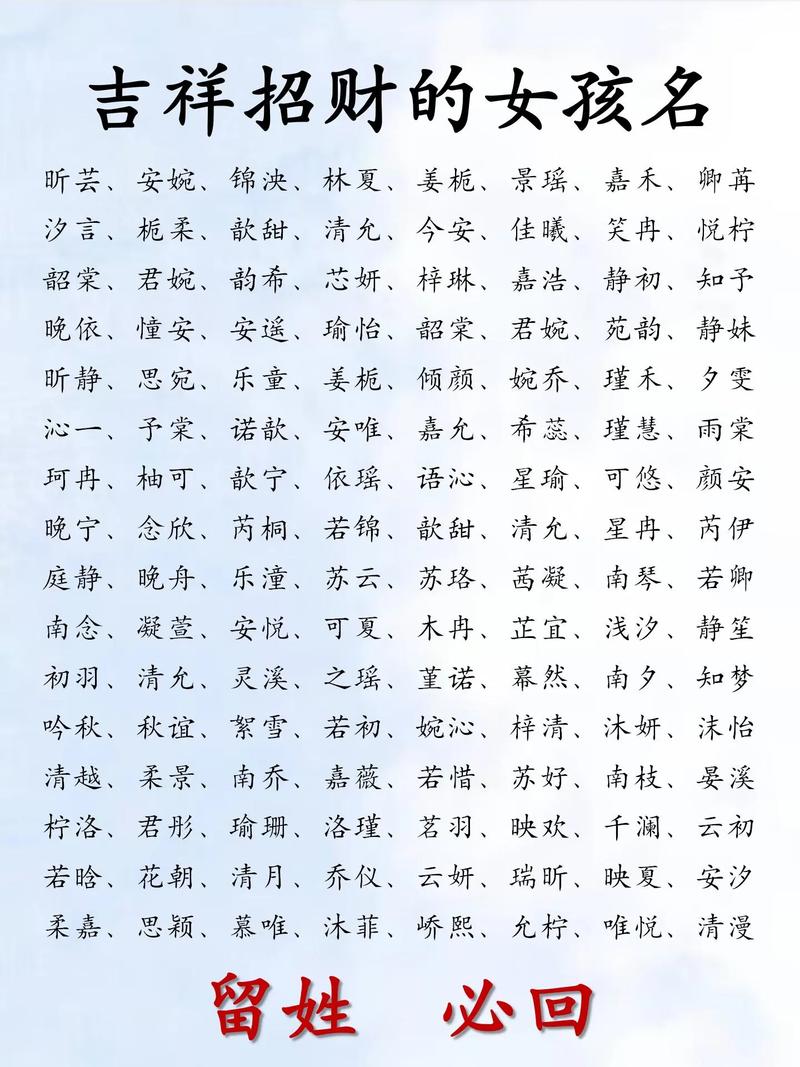 吉祥招财的女孩名
昕芸、安婉、锦泱、林夏、姜栀、景瑶、嘉禾、卿苒
汐言、栀柔、歆甜、清允、今安、佳曦、笑冉、悦柠
韶棠、君婉、韵希、芯妍、梓琳、嘉浩、静初、知予
晚依、憧安、安遥、瑜怡、韶棠、君婉、苑韵、静妹
昕静、思宛、乐童、姜栀、倾颜、婉乔、瑾禾、夕雯
沁一、予棠、诺歆、安唯、嘉允、希蕊、瑾慧、雨棠
珂冉、柚可、歆宁、依瑶、语沁、星瑜、可悠、颜安
晚宁、念欣、芮桐、若锦、歆甜、清允、星冉、芮伊
庭静、晚舟、乐潼、苏云、苏珞、茜凝、南琴、若卿
南念、凝萱、安悦、可夏、木冉、芷宜、浅汐、静笙
初羽、清允、灵溪、之瑶、堇诺、幕然、南夕、知梦
吟秋、秋谊、絮雪、若初、婉沁、梓清、沐妍、沫怡
清越、柔景、南乔、嘉薇、若惜、苏好、南枝、晏溪
柠洛、君彤、瑜珊、洛瑾、茗羽、映欢、千澜、云初
若晗、花朝、清月、乔仪、云妍、瑞昕、映夏、安汐
柔嘉、思颖、慕唯、沐菲、峤熙、允柠、唯悦、清漫
留姓 必回